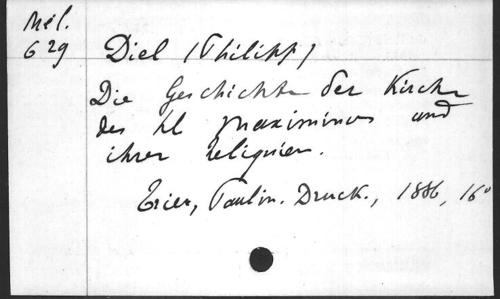 Mél.
G 29
Diel (Philipp)
Die Geschichte der Kirche
des hl Maximinus und
ihrer Reliquien.
Trier, Paulin. Druck., 1886, 16°